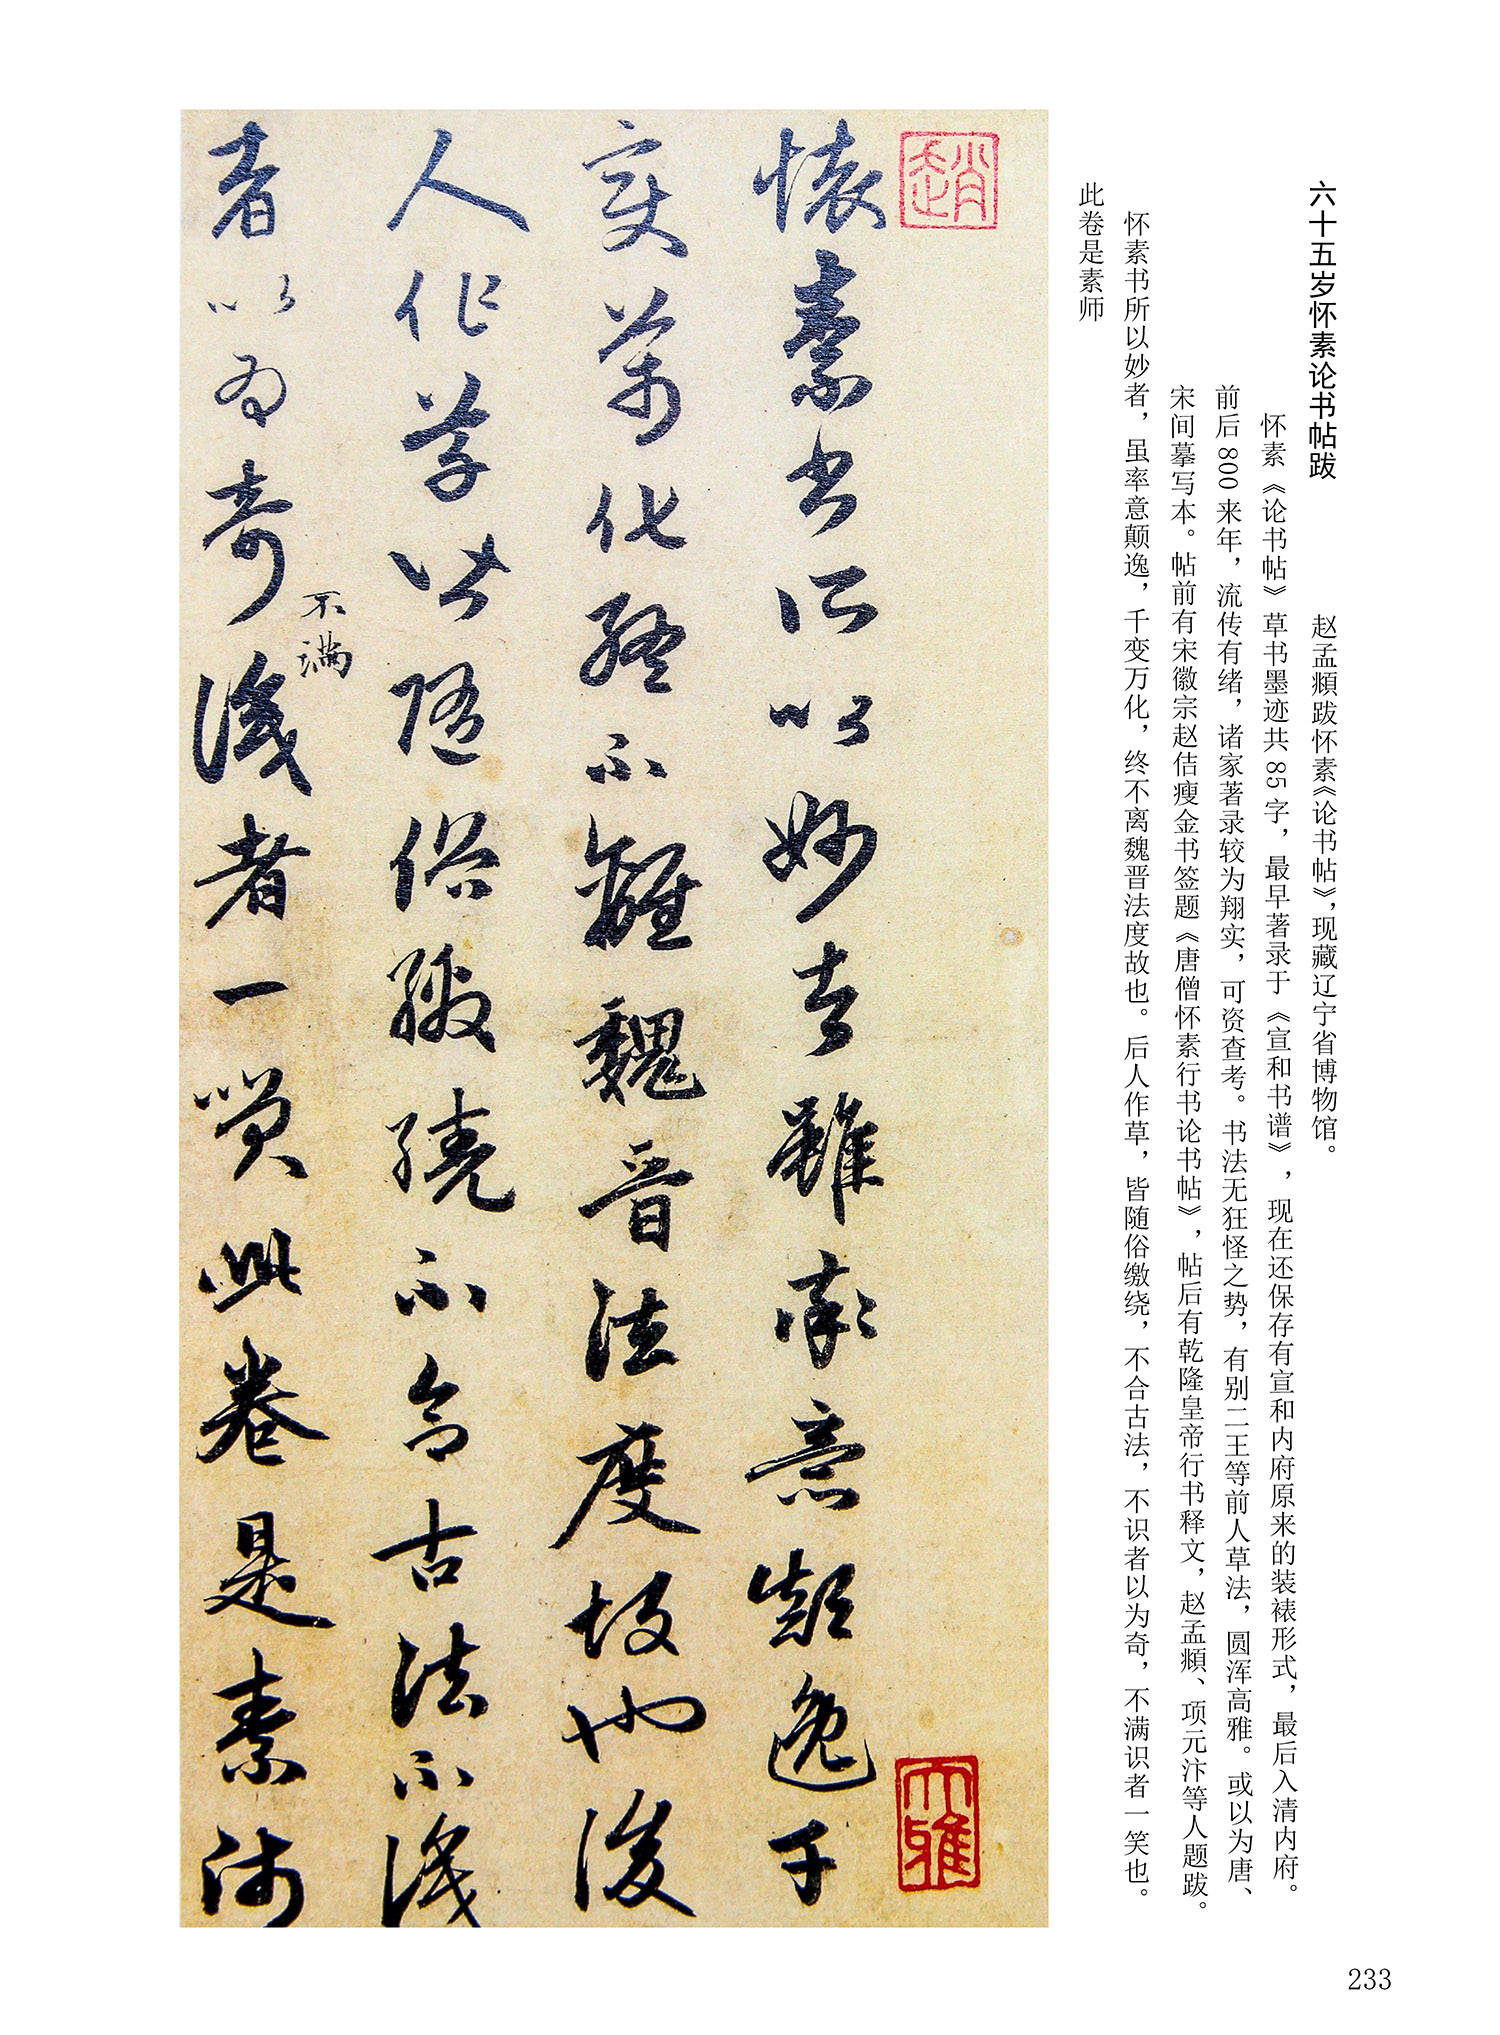 六十五岁怀素论书帖跋
赵孟頫跋怀素《论书帖》，现藏辽宁省博物馆。
怀素《论书帖》草书墨迹共85字，最早著录于《宣和书谱》，现在还保存有宣和内府原来的装裱形式，最后入清内府。
前后800来年，流传有绪，诸家著录较为翔实，可资查考。书法无狂怪之势，有别二王等前人草法，圆浑高雅。或以为唐、
宋间摹写本。帖前有宋徽宗赵佶瘦金书签题《唐僧怀素行书论书帖》，帖后有乾隆皇帝行书释文，赵孟頫、项元汴等人题跋。
怀素书所以妙者，虽率意颠逸，千变万化，终不离魏晋法度故也。后人作草，皆随俗缴绕，不合古法，不识者以为奇，不满识者一笑也。
此卷是素师
趙
大雅
懷素書所以妙者雖率意顛逸千
變萬化終不離魏晋法度故也後
人作草皆随俗繳繞不合古法不識
者以為奇識者一笑此卷是素師
不満
233